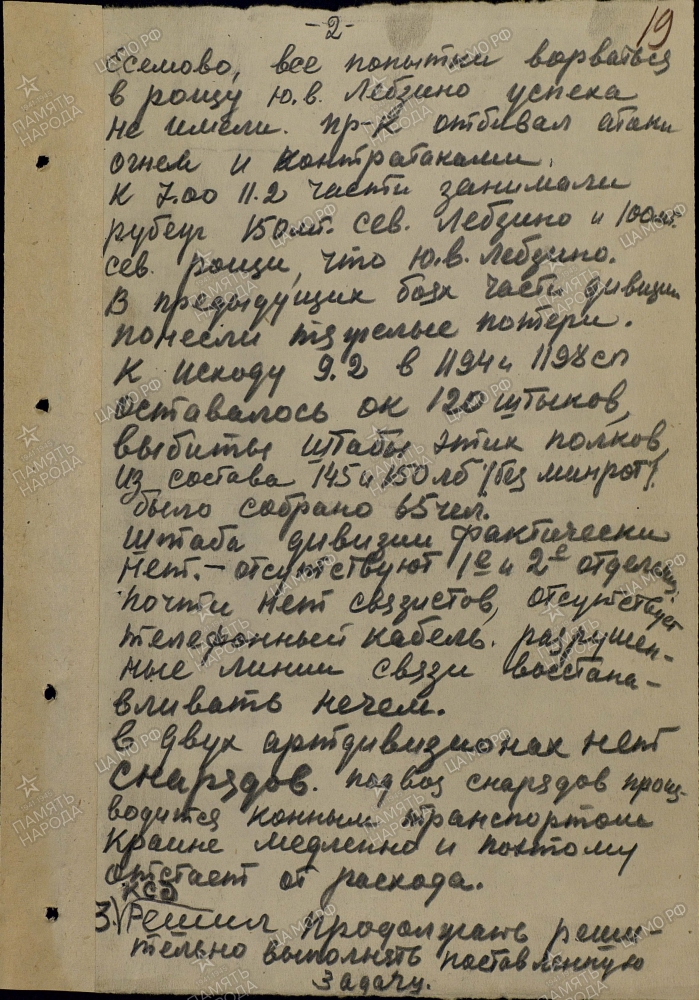 -2-
19
Ссемово, все попытки ворваться
в рощу ю.в. Лебзино успеха
не имели. пр-к отбивал атаки
огнем и контратаками.
К 7.00 11.2 части занимали
рубеж 150мт. сев. Лебзино и 100мт.
сев. рощи, что ю.в. Лебзино.
В предыдущих боях части дивизии
понесли тяжелые потери.
К исходу 9.2 в 1194 и 1198сп
оставалось ок 120 штыков,
выбиты штабы этих полков,
из состава 145 и 150 лб /без минрот/
было собрано 65 чел.
Штаба дивизии фактически
нет. - отсутствуют 1е и 2е отделения,
почти нет связистов, отсутствует
телефонный кабель. разрушен-
ные линии связи восстана-
вливать нечем.
В двух артдивизионах нет
снарядов. подвоз снарядов произ-
водится конным транспортом
крайне медленно и поэтому
отстает от расхода.
КСД
3.) Решил продолжать реши-
тельно выполнять поставленную
задачу.
ПАМЯТЬ НАРОДА
ЦАМО РФ